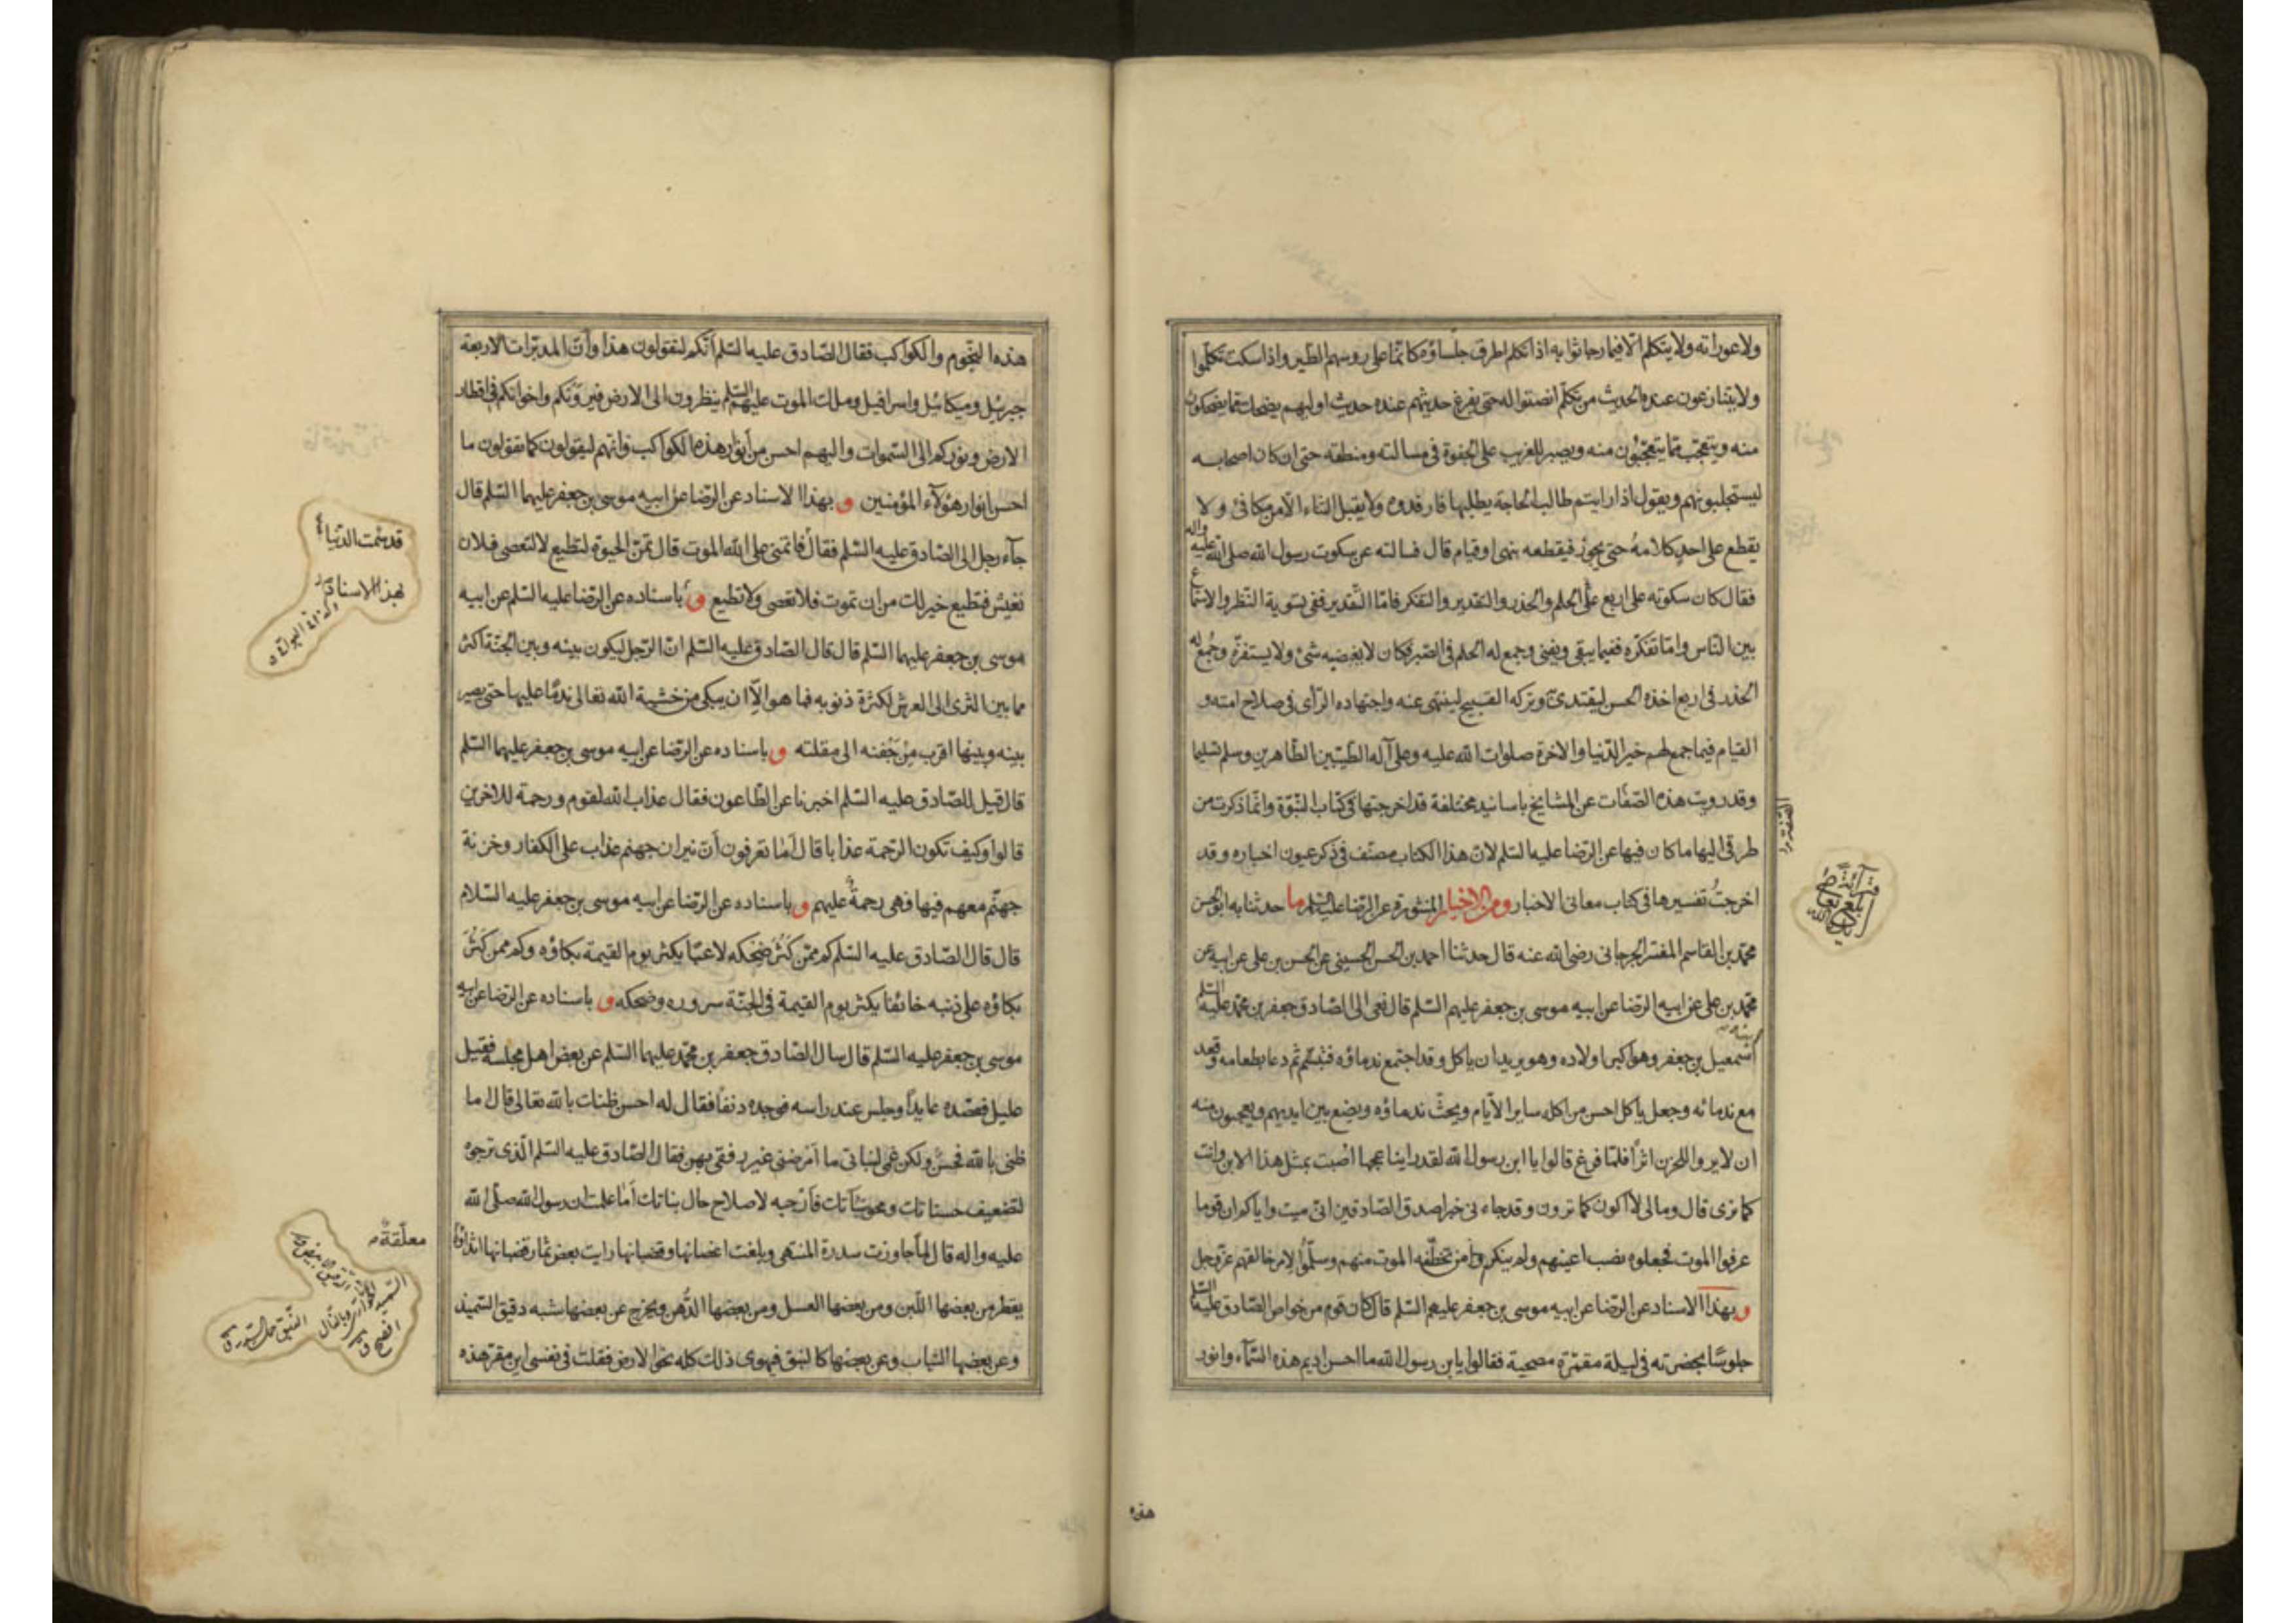 ولا عوراته ولا يتكلم الا فيما رجا ثوابه اذا تكلم اطرق جلساؤه كانّما على رؤسهم الطير واذا سكت تكلّموا
ولا يتنازعون عنده الحديث من تكلّم انصتوا له حتى يفرغ حديثهم عنده حديث اوليهم يضحك ممّا يضحكون
منه ويتعجّب ممّا يتعجّبون منه ويصبر للغريب على الجفوة في مسالته ومنطقه حتى ان كان اصحابه
ليستجلبونهم ويقول اذا رايتم طالب الحاجة يطلبها فارفدوه ولا يقبل الثناء الّا من مكافئ ولا
يقطع على احد كلامهُ حتى يجوز فيقطعه بنهى او قيام قال فسالته عن سكوت رسول الله صلى الله عليه واله
فقال كان سكوته على اربع على الحلم والحذر والتقدير والتفكر فامّا التّقدير ففى تسوية النّظر والاستماع
بين النّاس وامّا تفكّره ففيما يبقى ويفنى وجمع له الحلم في الصّبر فكان لا يغضبه شئ ولا يستفزّه وجُمع له
الحذر في اربع اخذه الحسن ليقتدى به وتركه القبيح لينتهى عنه واجتهاده الرّأى في صلاح امته و
القيام فيما جمع لهم خير الدّنيا والاخرة صلوات الله عليه وعلى آله الطّيّبين الطّاهرين وسلم تسليما
وقد رويت هذه الصّفات عن المشايخ باسانيد مختلفة قد اخرجتها في كتاب النّبوّة وانّما ذكرت من
طرقى اليها ما كان فيها عن الرّضا عليه السّلم لانّ هذا الكتاب مصنّف في ذكر عيون اخباره وقد
اخرجتُ تفسيرها في كتاب معانى الاخبار ومن الاخبار المنثورة عن الرّضا عليه السّلم ما حدثنا به ابو الحسن
محمّد بن القاسم المفسّر الجرجانى رضى الله عنه قال حدثنا احمد بن الحسن الحسينى عن الحسن بن على عن ابيه عن
محمّد بن على عن ابيه الرّضا عن ابيه موسى بن جعفر عليهم السّلم قال نعى الى الصّادق جعفر بن محمّد عليه السّلم
ابنه اسمعيل بن جعفر وهو اكبر اولاده وهو يريد ان ياكل وقد اجتمع ندماؤه فتبسّم ثم دعا بطعامه وقعد
مع ندمائه وجعل ياكل احسن من اكله ساير الايّام ويحثّ ندماؤه ويضع بين ايديهم ويعجبون منه
ان لا يروا للحزن اثراً فلمّا فرغ قالوا يا ابن رسول الله لقد راينا عجبا اصبت بمثل هذا الابن وانت
كما نرى قال وما لى لا اكون كما ترون وقد جاءنى خبر اصدق الصّادقين انى ميت واياكم ان قوما
عرفوا الموت فجعلوه نصب اعينهم ولم ينكروا من تخطّفه الموت منهم وسلّموا لامر خالقهم عزّ وجل
و بهذا الاسناد عن الرّضا عن ابيه موسى بن جعفر عليهم السّلم قال كان قوم من خواص الصّادق عليه السّلم
جلوسًا بحضرته في ليلة مقمّرة مصحية فقالوا يا بن رسول الله ما احسن اديم هذه السّمآء وانور
هذه
هذه النّجوم والكواكب فقال الصّادق عليه السّلم انّكم لتقولون هذا وانّ المدبّرات الاربعة
جبرئيل وميكائيل واسرافيل وملك الموت عليهم السّلم ينظرون الى الارض فيرونكم واخوانكم في اقطار
الارض ونوركم الى السّموات واليهم احسن من انوار هذه الكواكب وانّهم ليقولون كما تقولون ما
احسن انوار هؤلآء المؤمنين و بهذا الاسناد عن الرّضا عن ابيه موسى بن جعفر عليهما السّلم قال
جآء رجل الى الصّادق عليه السّلم فقال قد سئمت الدّنيا فاتمنى على الله الموت قال تمنّ الحيوة لتطيع لا لتعصى فلان
تعيش فتطيع خير لك من ان تموت فلا تعصى ولا تطيع و باسناده عن الرّضا عليه السّلم عن ابيه
موسى بن جعفر عليهما السّلم قال قال الصّادق عليه السّلم انّ الرّجل ليكون بينه وبين الجنّة اكثر
مما بين الثرى الى العرش لكثرة ذنوبه فما هو الّا ان يبكى من خشية الله تعالى ندمًا عليها حتى يصير
بينه وبينها اقرب من جَفنه الى مقلته و باسناده عن الرّضا عن ابيه موسى بن جعفر عليهما السّلم
قال قيل للصّادق عليه السّلم اخبرنا عن الطّاعون فقال عذاب الله لقوم ورحمة للاخرين
قالوا وكيف تكون الرّحمة عذابا قال اَما تعرفون اَنّ نيران جهنم عذاب على الكفار وخزنة
جهنّم معهم فيها فهى رحمةٌ عليهم و باسناده عن الرّضا عن ابيه موسى بن جعفر عليه السّلام
قال قال الصّادق عليه السّلم كم ممّن كَثُرَ ضحكه لاعبًا يكثر يوم القيمة بكاؤه وكم ممن كَثُرَ
بكاؤه على ذنبه خائفا يكثر يوم القيمة في الجنّة سروره وضحكه و باسناده عن الرّضا عن ابيه
موسى بن جعفر عليه السّلم قال سال الصّادق جعفر بن محمّد عليهما السّلم عن بعض اهل مجلسه فقيل
عليل فقصده عايداً وجلس عند راسه فوجده دنفاً فقال له احسن ظنك بالله تعالى قال اما
ظنى بالله فحسنٌ ولكن غمى لبناتى ما اَمرضنى غير رفقى بهن فقال الصّادق عليه السّلم الّذى ترجوه
لتضعيف حسناتك ومحو سيّآتك فاَرجه لاصلاح حال بناتك اَما علمت ان رسول الله صلّى الله
عليه واله قال لمّا جاوزت سدرة المنتهى وبلغت اغصانها وقضبانها رايت بعض ثمار قضبانها اثداؤها
يقطر من بعضها اللّبن ومن بعضها العسل ومن بعضها الدُّهن ويخرج عن بعضها شبه دقيق السّميذ
وعن بعضها الثياب وعن بعضها كالنبق فيهوى ذلك كله نحو الارض فقلت في نفسى اين مقرّ هذه
قد سئمت الدّنيا
بهذا الاسناد
معلّقة